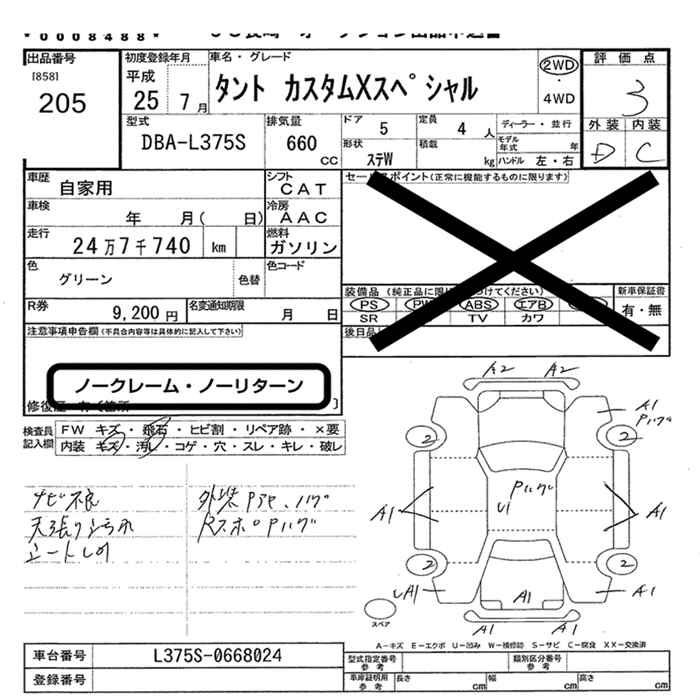 * 0 0 0 8 4 8 8 *
出品番号
[858]
205
初度登録年月
平成
25 7 月
車名・グレード
タント カスタムXスペシャル
2WD
・
4WD
評価点
3
外装 内装
D C
型式
DBA-L375S
排気量
660
CC
ドア 5
定員 4 人
ディーラー・並行
モデル年式 年
形状 ステW
積載 kg
ハンドル 左・右
車歴
自家用
シフト
CAT
車検
年 月( 日)
冷房
AAC
走行
24万7千740 km
燃料
ガソリン
色
グリーン
色替
色コード
R券
9,200 円
名変通知期限
月 日
セールスポイント(正常に機能するものに限ります)
装備品
PS PW ABS エアB
SR TV カワ
新車保証書
有・無
後日品
注意事項申告欄(不具合内容等は具体的に記入して下さい)
ノークレーム・ノーリターン
検査員記入欄
FW キズ・飛石・ヒビ割・リペア跡・×要
内装 キズ・汚レ・コゲ・穴・スレ・キレ・破レ
ナビ不良
外装
A2 A2
A1
2 2
A1 A1
U1
2 2
UA1 A1 A1
A1 A1
スペア
A-キズ E-エクボ U-凹み W-補修跡 S-サビ C-腐食 XX-交換済
車台番号 L375S-0668024
登録番号
型式指定番号参考
類別区分番号参考
車庫証明用参考
長さ cm
幅 cm
高さ cm